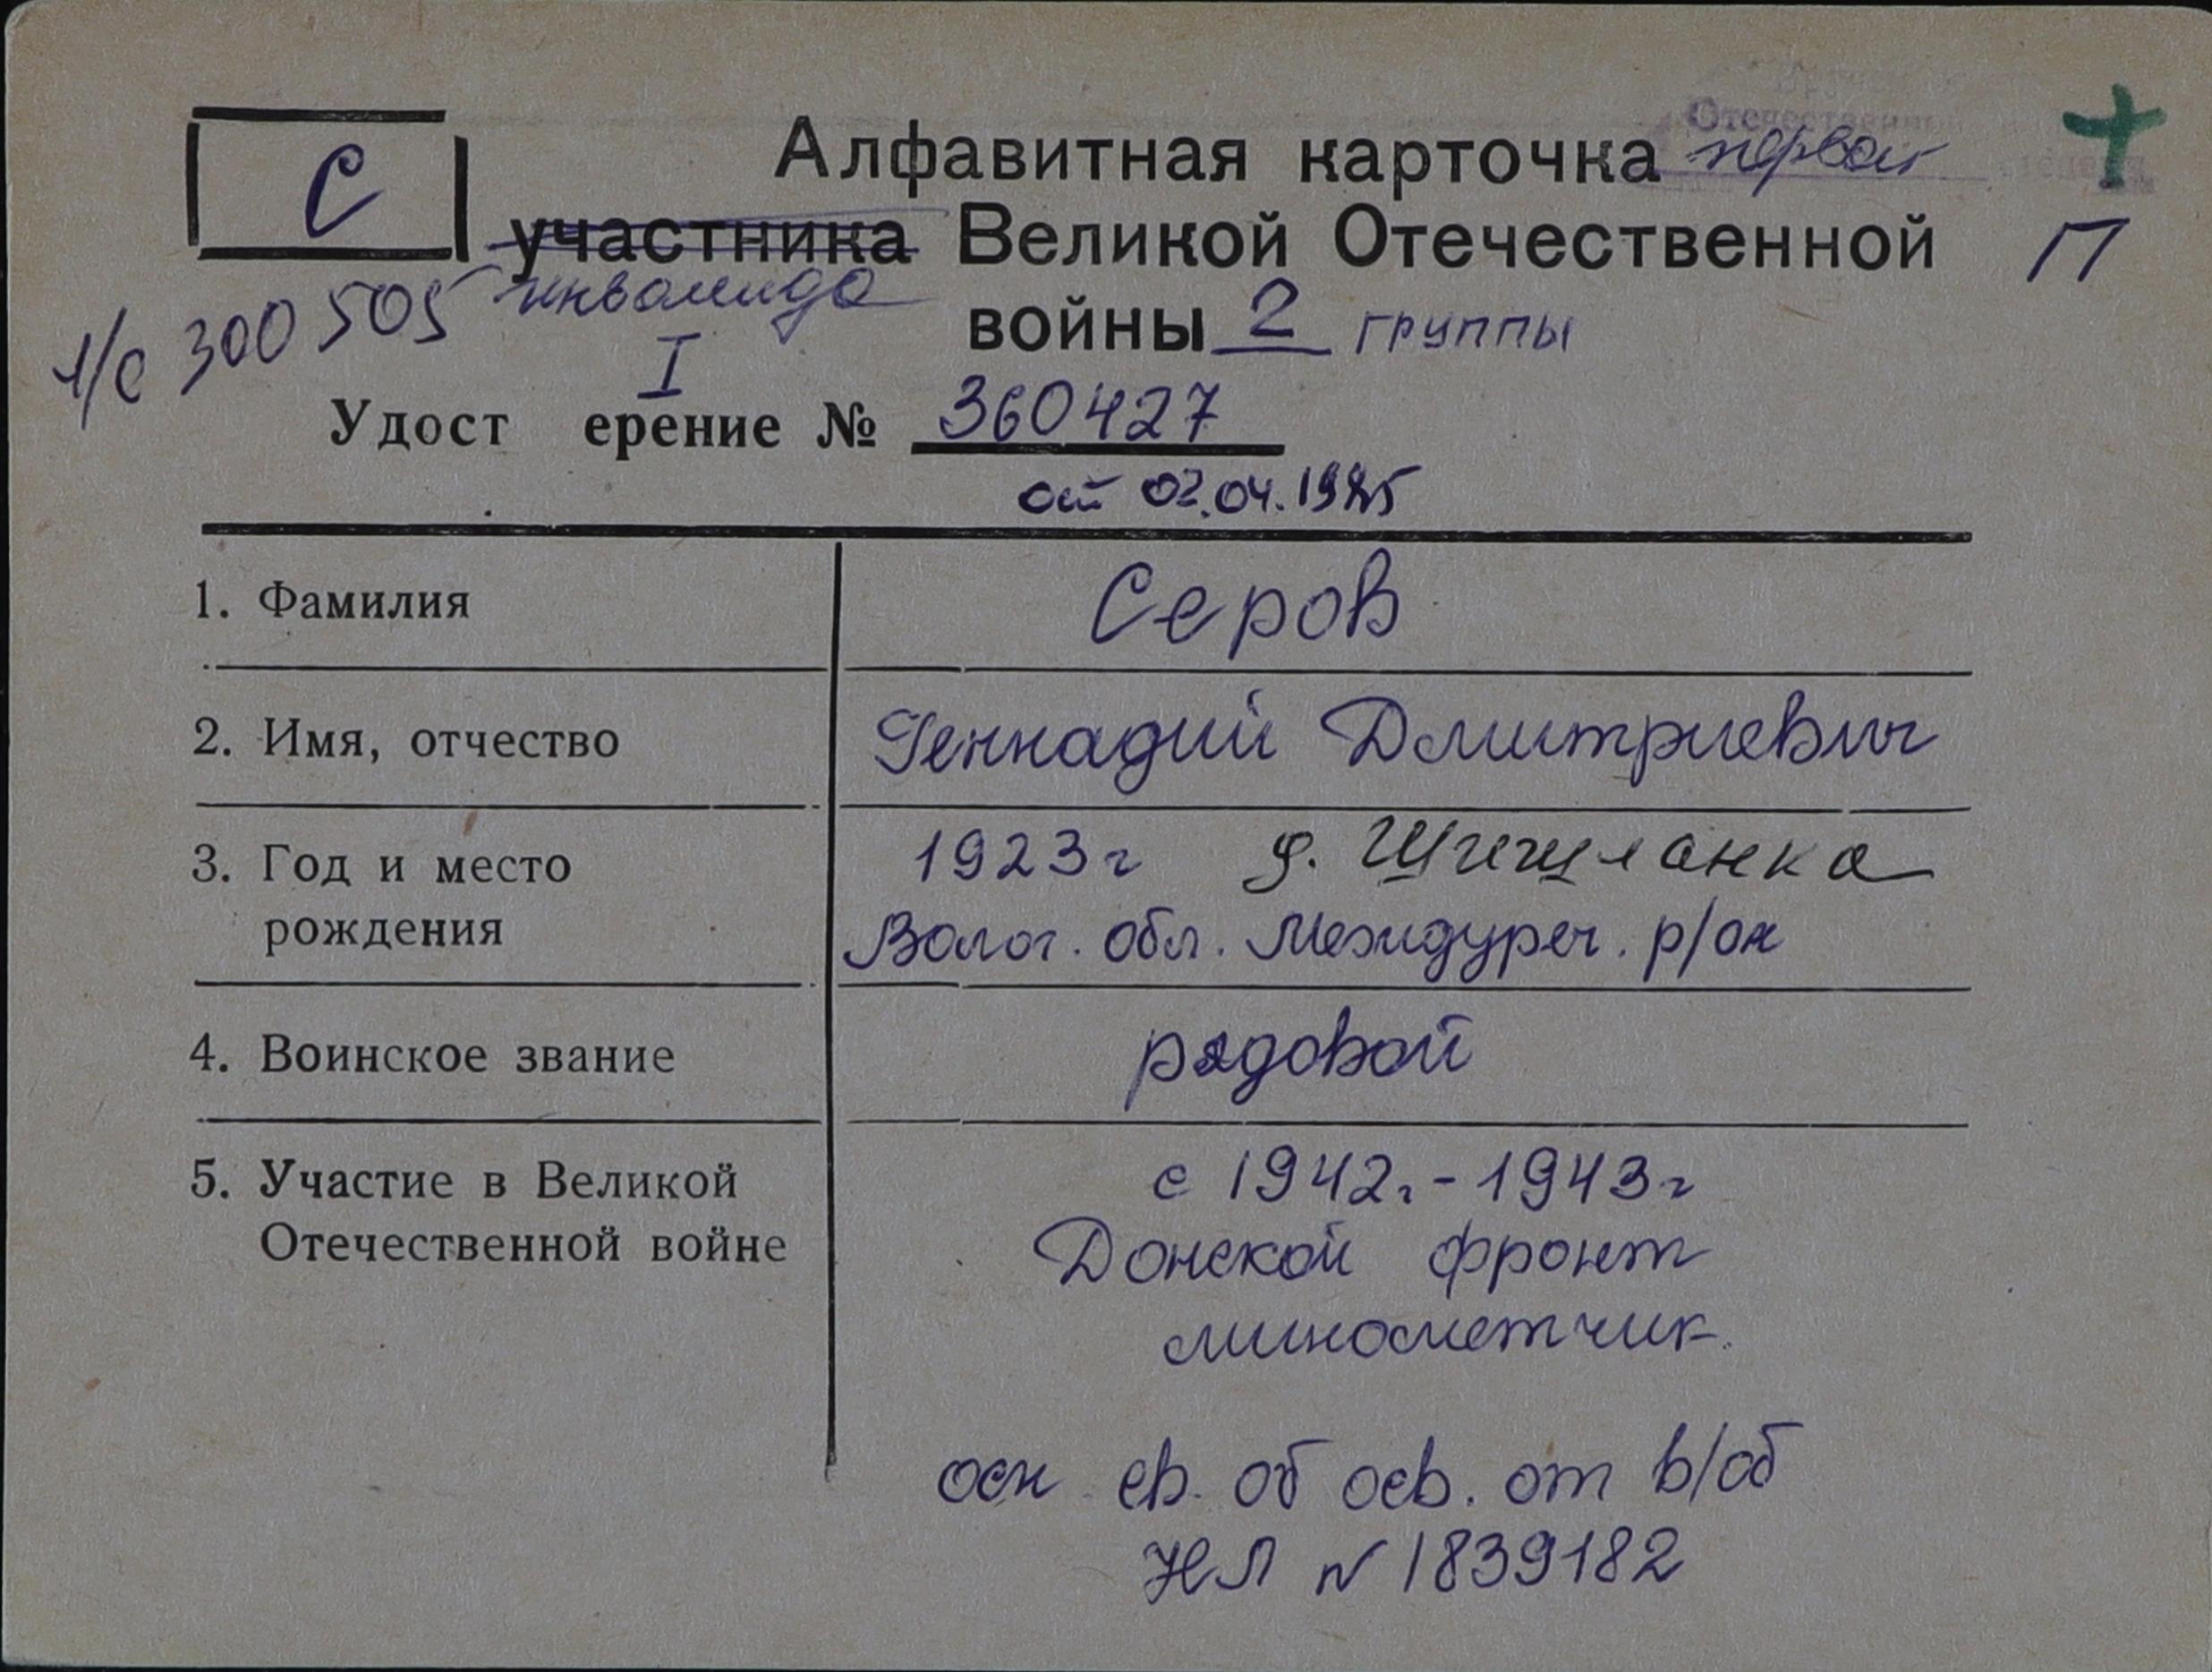 С
Алфавитная карточка первой
Отечественной
участника Великой Отечественной П
инвалида
войны 2 группы
л/с 300505
I
Удост ерение № 360427
от 02.04.1985
1. Фамилия Серов
2. Имя, отчество Геннадий Дмитриевич
3. Год и место 1923г д.
рождения Волог. обл. Междуреч. р/он
4. Воинское звание рядовой
5. Участие в Великой с 1942г-1943г
Отечественной войне Донской фронт
минометчик.
осн св. об осв. от в/об
НЛ № 1839182